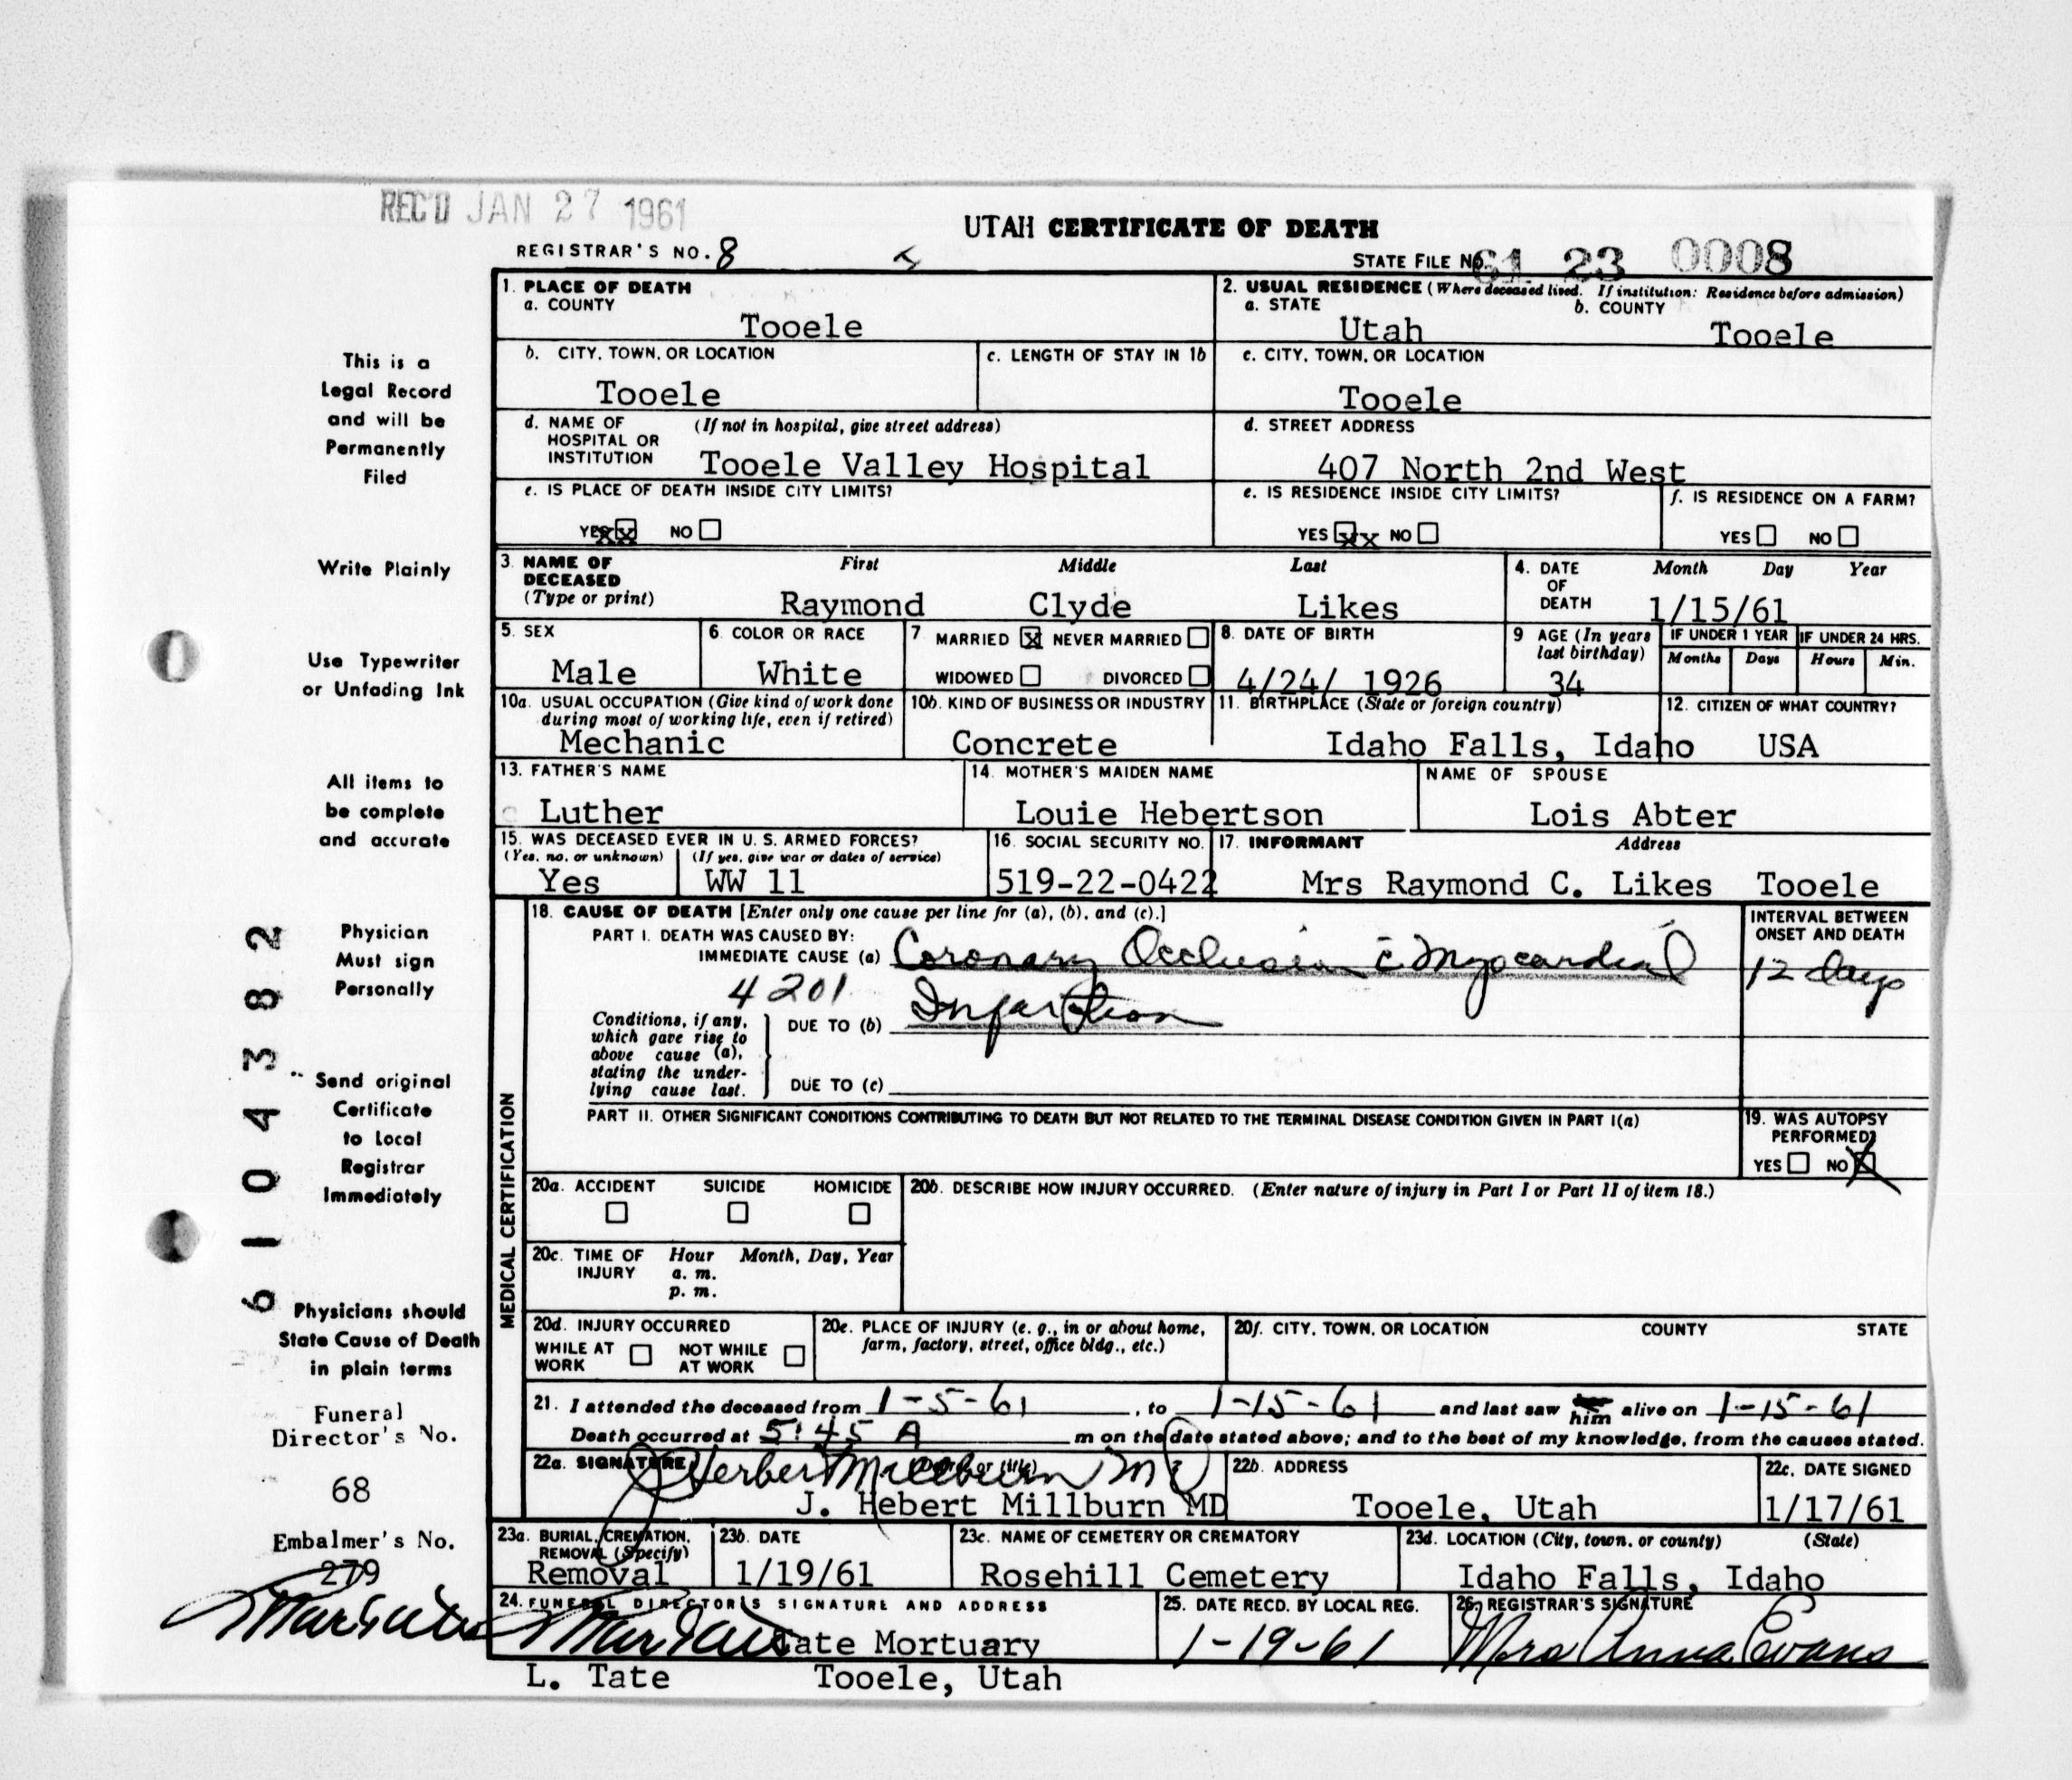 REC'D JAN 27 1961
UTAH CERTIFICATE OF DEATH
REGISTRAR'S NO. 8
STATE FILE NO. 61 23 0008
1. PLACE OF DEATH
a. COUNTY
Tooele
2. USUAL RESIDENCE (Where deceased lived. If institution: Residence before admission)
a. STATE b. COUNTY
Utah Tooele
b. CITY, TOWN, OR LOCATION
Tooele
c. LENGTH OF STAY IN 1b
c. CITY, TOWN, OR LOCATION
Tooele
d. NAME OF HOSPITAL OR INSTITUTION (If not in hospital, give street address)
Tooele Valley Hospital
d. STREET ADDRESS
407 North 2nd West
e. IS PLACE OF DEATH INSIDE CITY LIMITS?
YES xx NO
e. IS RESIDENCE INSIDE CITY LIMITS?
YES xx NO
f. IS RESIDENCE ON A FARM?
YES NO
3. NAME OF DECEASED (Type or print)
First Middle Last
Raymond Clyde Likes
4. DATE OF DEATH Month Day Year
1/15/61
5. SEX
Male
6. COLOR OR RACE
White
7. MARRIED X NEVER MARRIED
WIDOWED DIVORCED
8. DATE OF BIRTH
4/24/ 1926
9 AGE (In years last birthday)
34
IF UNDER 1 YEAR IF UNDER 24 HRS.
Months Days Hours Min.
10a. USUAL OCCUPATION (Give kind of work done during most of working life, even if retired)
Mechanic
10b. KIND OF BUSINESS OR INDUSTRY
Concrete
11. BIRTHPLACE (State or foreign country)
Idaho Falls, Idaho
12. CITIZEN OF WHAT COUNTRY?
USA
13. FATHER'S NAME
Luther
14. MOTHER'S MAIDEN NAME
Louie Hebertson
NAME OF SPOUSE
Lois Abter
15. WAS DECEASED EVER IN U. S. ARMED FORCES?
(Yes, no, or unknown) (If yes, give war or dates of service)
Yes WW 11
16. SOCIAL SECURITY NO.
519-22-0422
17. INFORMANT Address
Mrs Raymond C. Likes Tooele
MEDICAL CERTIFICATION
18. CAUSE OF DEATH [Enter only one cause per line for (a), (b), and (c).]
PART I. DEATH WAS CAUSED BY:
IMMEDIATE CAUSE (a) Coronary Occlusion c̄ Myocardial
4201
Conditions, if any, which gave rise to above cause (a), stating the underlying cause last.
DUE TO (b) Infarction
DUE TO (c)
INTERVAL BETWEEN ONSET AND DEATH
12 days
PART II. OTHER SIGNIFICANT CONDITIONS CONTRIBUTING TO DEATH BUT NOT RELATED TO THE TERMINAL DISEASE CONDITION GIVEN IN PART I(a)
19. WAS AUTOPSY PERFORMED?
YES NO X
20a. ACCIDENT SUICIDE HOMICIDE
20b. DESCRIBE HOW INJURY OCCURRED. (Enter nature of injury in Part I or Part II of item 18.)
20c. TIME OF INJURY Hour Month, Day, Year
a. m.
p. m.
20d. INJURY OCCURRED
WHILE AT WORK NOT WHILE AT WORK
20e. PLACE OF INJURY (e. g., in or about home, farm, factory, street, office bldg., etc.)
20f. CITY, TOWN, OR LOCATION COUNTY STATE
21. I attended the deceased from 1-5-61, to 1-15-61 and last saw him alive on 1-15-61
Death occurred at 5:45 A m on the date stated above; and to the best of my knowledge, from the causes stated.
22a. SIGNATURE (Degree or title)
J Herbert Millburn MD
J. Hebert Millburn MD
22b. ADDRESS
Tooele, Utah
22c. DATE SIGNED
1/17/61
23a. BURIAL, CREMATION, REMOVAL (Specify)
Removal
23b. DATE
1/19/61
23c. NAME OF CEMETERY OR CREMATORY
Rosehill Cemetery
23d. LOCATION (City, town, or county) (State)
Idaho Falls, Idaho
24. FUNERAL DIRECTOR'S SIGNATURE AND ADDRESS
Tate Mortuary
L. Tate Tooele, Utah
25. DATE RECD. BY LOCAL REG.
1-19-61
26. REGISTRAR'S SIGNATURE
Mrs Anna Evans
This is a
Legal Record
and will be
Permanently
Filed
Write Plainly
Use Typewriter
or Unfading Ink
All items to
be complete
and accurate
Physician
Must sign
Personally
Send original
Certificate
to Local
Registrar
Immediately
Physicians should
State Cause of Death
in plain terms
Funeral
Director's No.
68
Embalmer's No.
279
6104382